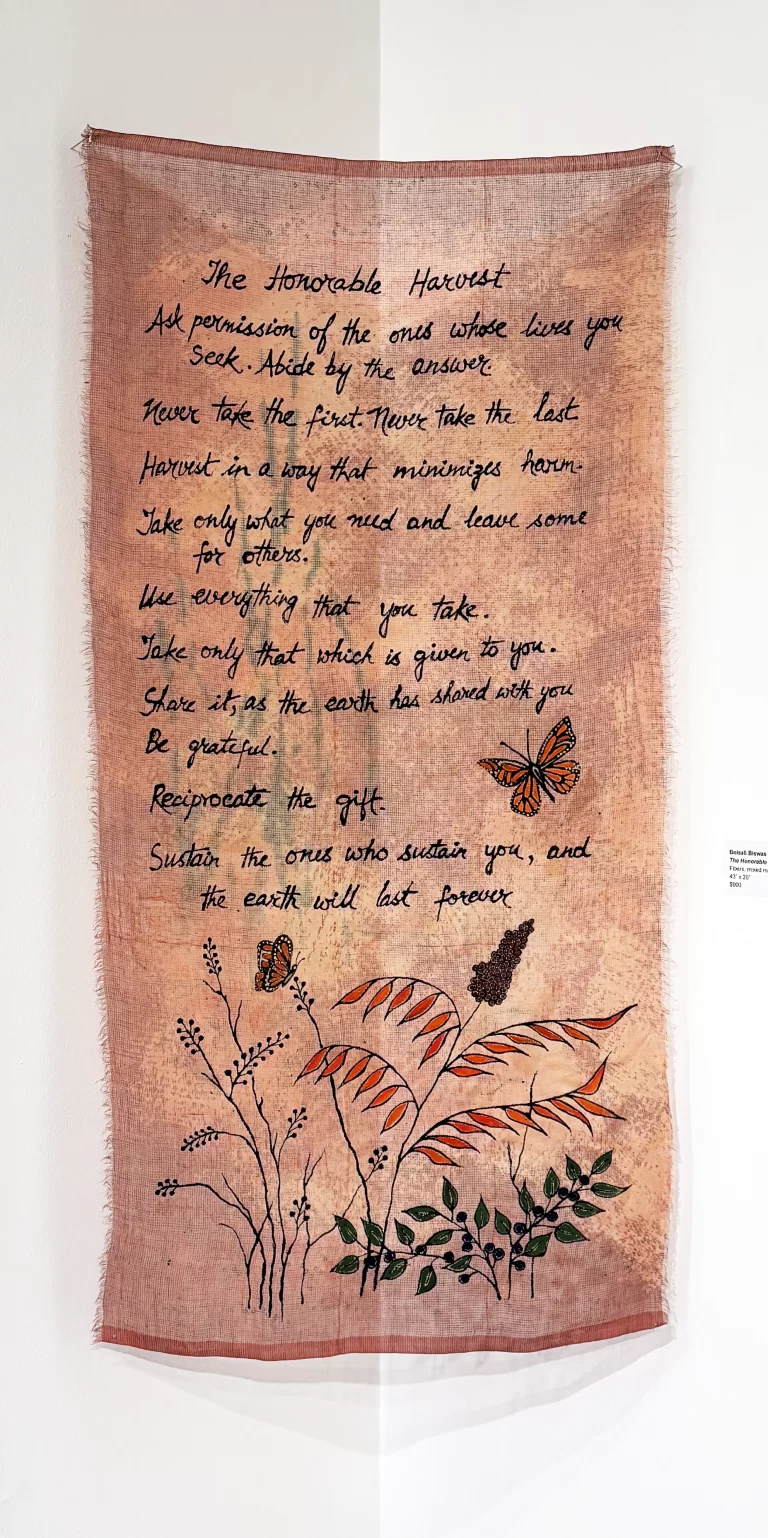 The Honorable Harvest
Ask permission of the ones whose lives you
Seek. Abide by the answer.
Never take the first. Never take the last.
Harvest in a way that minimizes harm.
Take only what you need and leave some
for others.
Use everything that you take.
Take only that which is given to you.
Share it, as the earth has shared with you
Be grateful.
Reciprocate the gift.
Sustain the ones who sustain you, and
the earth will last forever
Boisali Biswas
The Honorable
Fibers, mixed
43" x 20"
$900